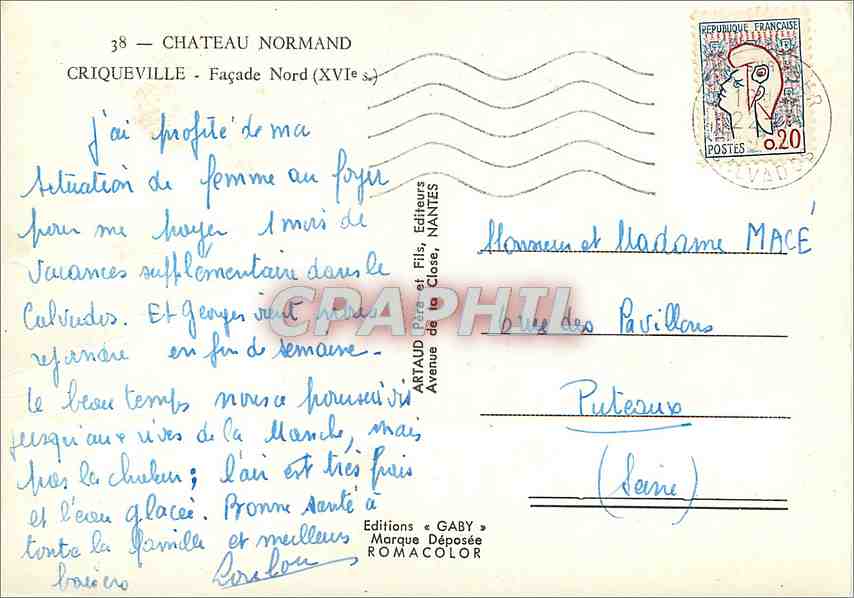 38 — CHATEAU NORMAND
CRIQUEVILLE - Façade Nord (XVIe s.)
J'ai profité de ma
situation de femme au foyer
pour me payer 1 mois de
vacances supplémentaire dans le
Calvados. Et Georges vient nous
rejoindre en fin de semaine -
Le beau temps nous a poursuivis
jusqu'aux rives de la Manche, mais
pas la chaleur ; l'air est très frais
et l'eau glacée. Bonne santé à
toute la famille et meilleurs
baisers
ARTAUD Père et Fils, Editeurs
Avenue de la Close, NANTES
CPAPHIL
Editions « GABY »
Marque Déposée
ROMACOLOR
REPUBLIQUE FRANÇAISE
POSTES 0,20
Monsieur et Madame MACÉ
rue des Pavillons
Puteaux
(Seine)